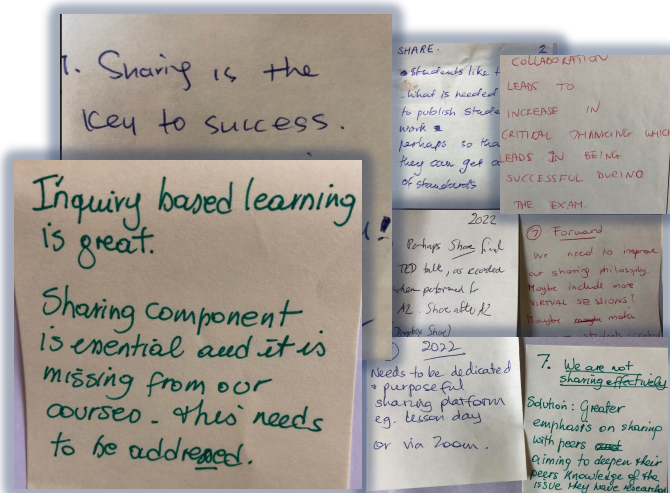 1. Sharing is the
key to success.
Inquiry based learning
is great.
Sharing component
is essential and it is
missing from our
courses. This needs
to be addressed.
SHARE. 2
• Students like
what is needed
to publish stude
work
perhaps so tha
they can get a
of standards
COLLABORATION
LEADS TO
INCREASE IN
CRITICAL THINCING WHIC
LEADS IN BEING
SUCCESSFUL DURING
THE EXAM.
2022
Perhaps Share final
TED talk, as recorded
when performed for
A2. Share after A2
(Dropbox Share)
7 Forward
We need to improve
our sharing philosophy.
Maybe include more
VIRTUAL SESSIONS?
Maybe make
2022
Needs to be dedicated
+ purposeful
sharing platform
eg. lesson day
or via Zoom.
7. We are not
sharing effectively
Solution: Greater
emphasis on sharing
with peers
aiming to deepen their
peers knowledge of the
issue they have researched